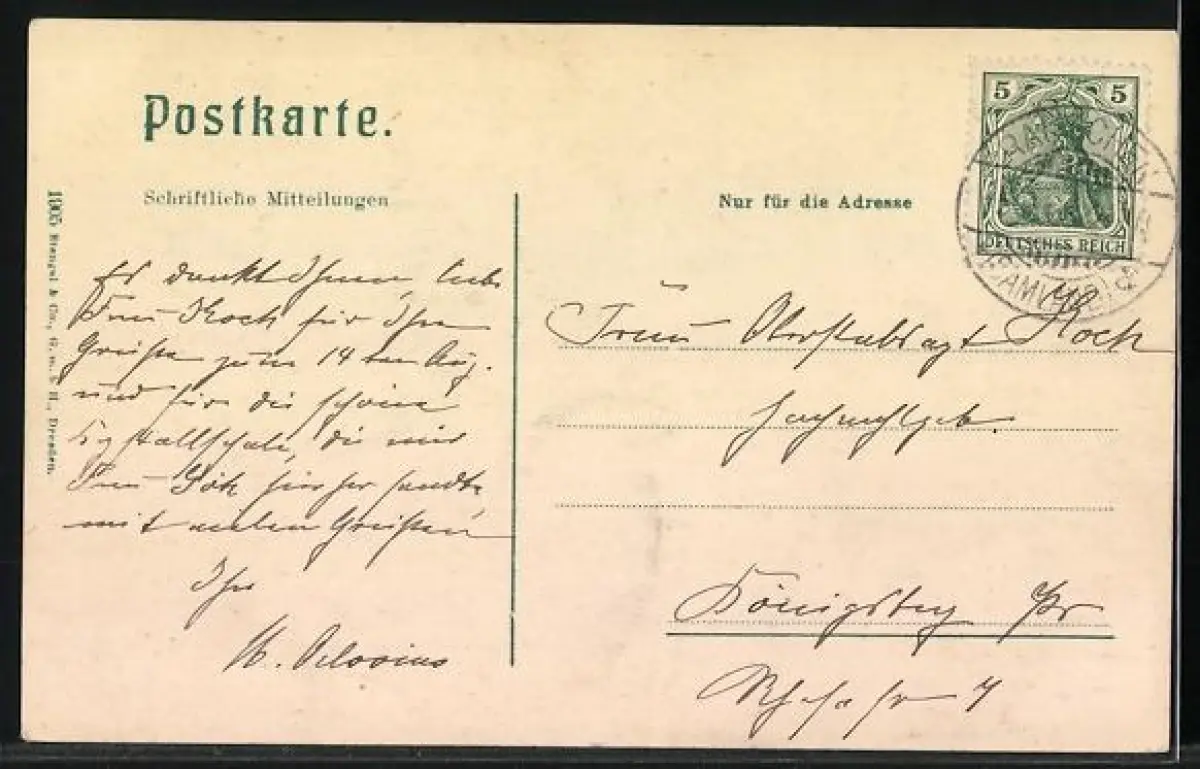 Postkarte.
Schriftliche Mitteilungen
Nur für die Adresse
1905 Stengel & Co., G. m. b. H., Dresden.
5 5
DEUTSCHES REICH
Es dankt Ihnen, liebe
Frau Koch für Ihre
Grüße zum 14ten Aug.
und für die schöne
die mir
Frau hierher sandte
mit vielen Grüßen
Ihr
Frau Oberstabsarzt Koch
Hochwohlgeb.
Königsberg Pr